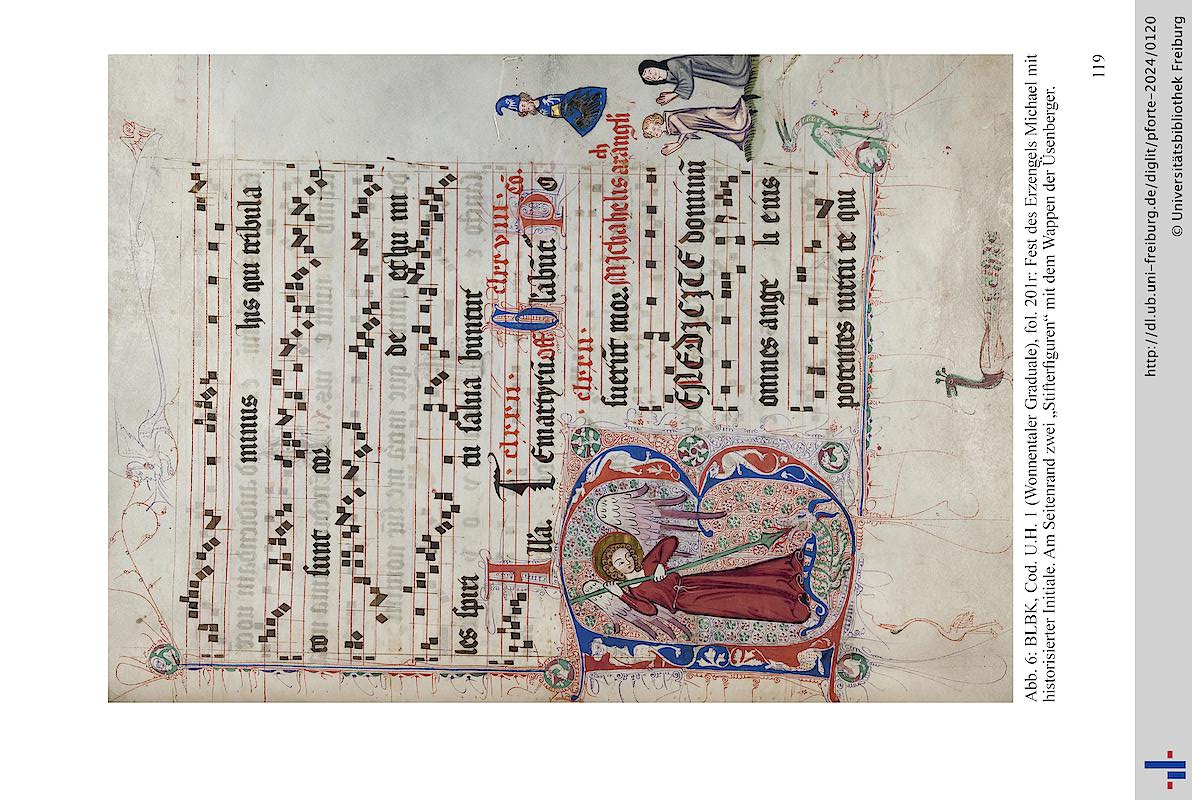 minus his qui tribula
to sunt cor
de et hu mi
les spiri tu salua buntur
suerūt mor. Mjchahelis arangli
ch
BENEDICITE dominū
omnes ange li eius
potentes uirtu te qui
Abb. 6: BLBK, Cod. U.H. 1 (Wonnentaler Graduale), fol. 201r: Fest des Erzengels Michael mit
historisierter Initiale. Am Seitenrand zwei „Stifterfiguren“ mit dem Wappen der Üsenberger.
119
http://dl.ub.uni-freiburg.de/diglit/pforte-2024/0120
© Universitätsbibliothek Freiburg